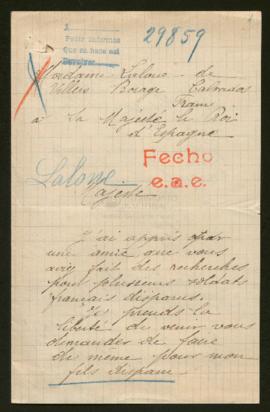 29859
1
Pedir informes
Que se hace así
Devolver
Madame Laloue de
Villers Bocage Calvados
France
à Sa Majesté le Roi
d'Espagne
Fecho
e.a.e.
Laloue
Majesté
J'ai appris par
une amie que vous
avez fait des recherches
pour plusieurs soldats
français disparus.
Je prends la
liberté de venir vous
demander de faire
de meme pour mon
fils disparu